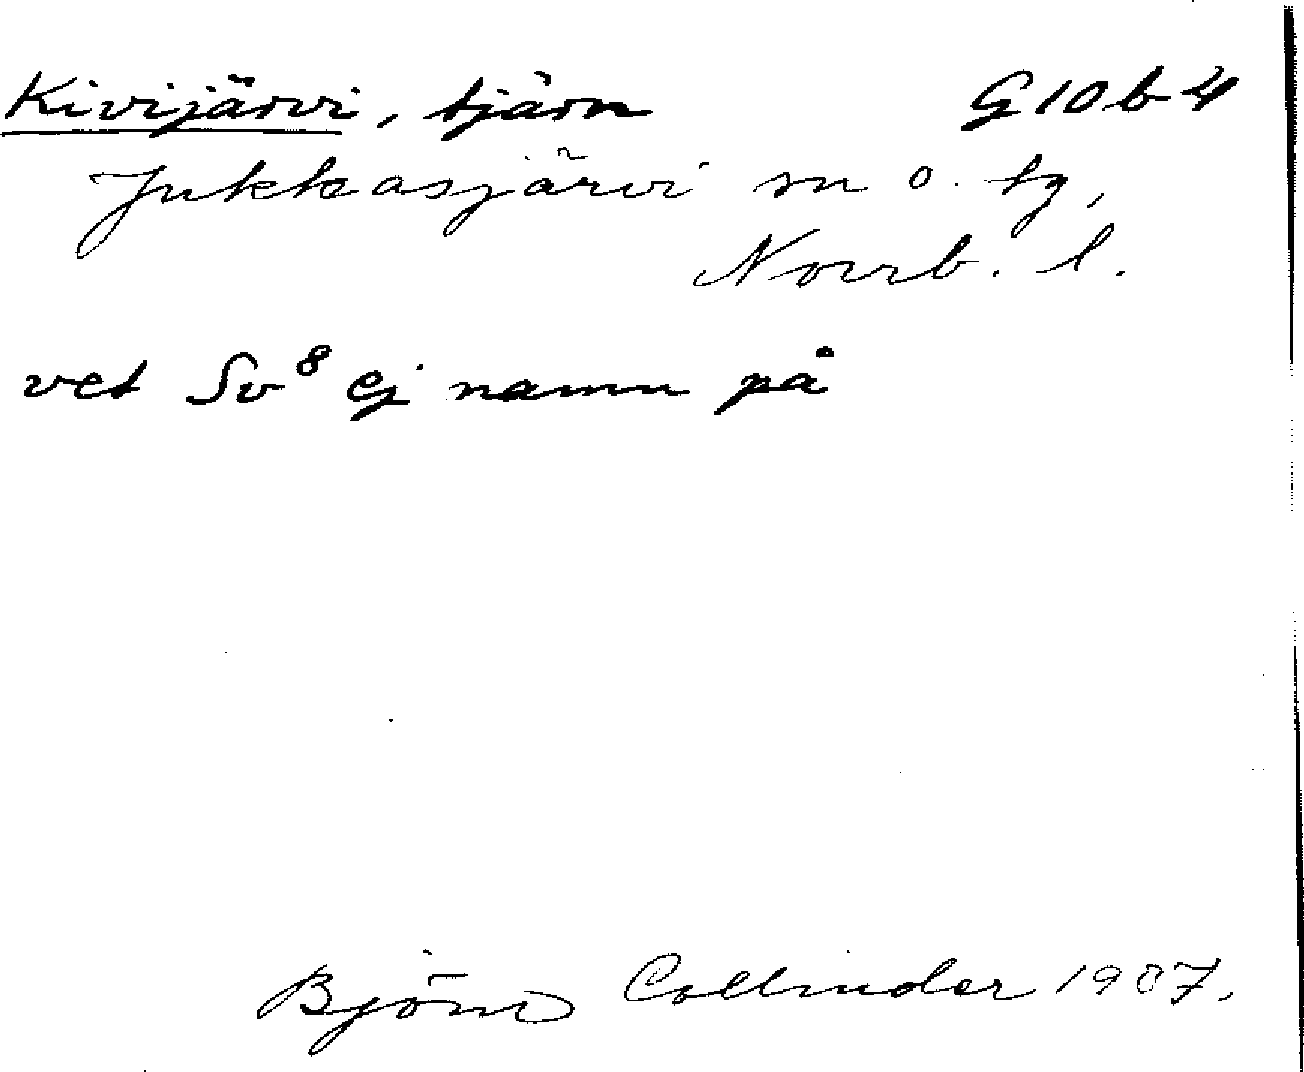 Kivijärvi, tjärn G10b4
Jukkasjärvi sn o. tg,
Norrb. l.
vet Sv⁸ ej namn på
Björn Collinder 1907.